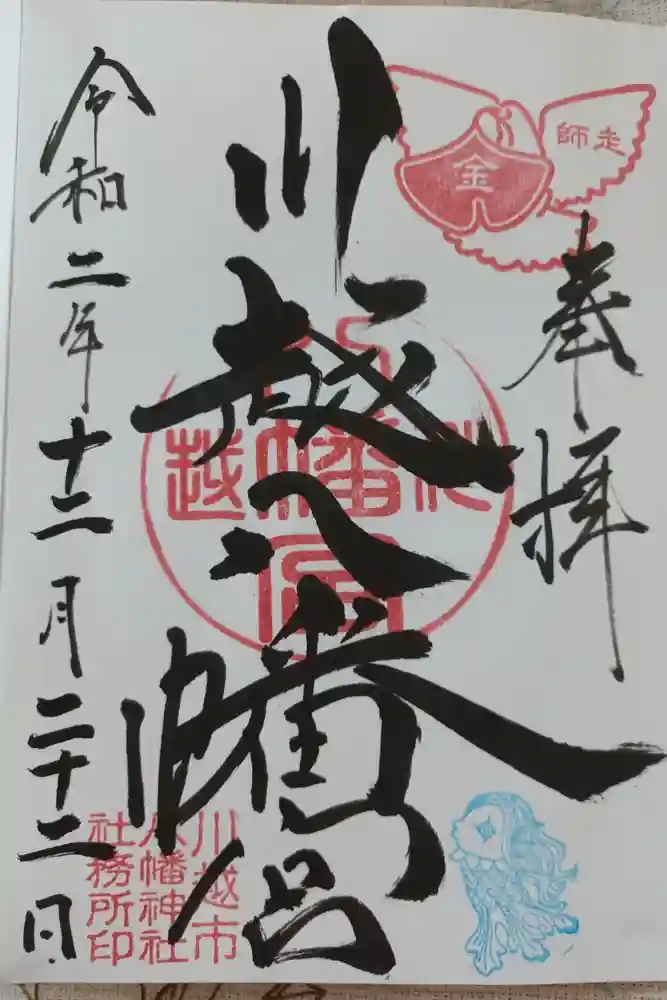 奉拝
師走
金
川越八幡宮
川越市
八幡神社
社務所印
令和二年十二月二十二日